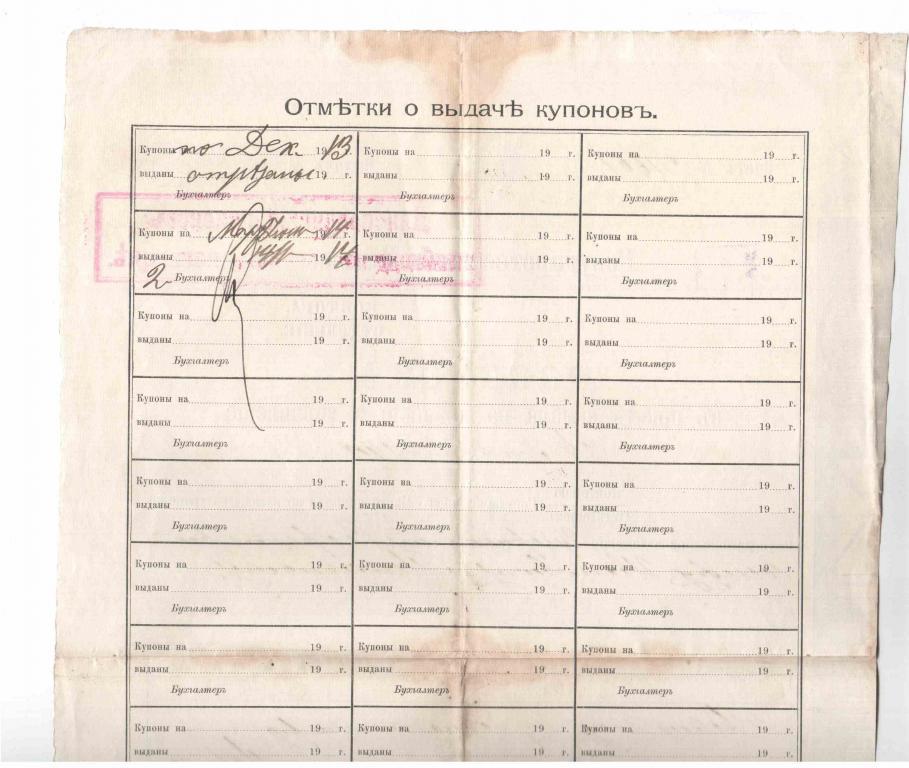 Отмѣтки о выдачѣ купоновъ.
Купоны на по Дек. 1913 г.
выданы отрѣзаны 19 г.
Бухгалтеръ
Купоны на 19 г.
выданы 19 г.
Бухгалтеръ
Купоны на 19 г.
выданы 19 г.
Бухгалтеръ
Купоны на 1914 г.
выданы 1914
2 Бухгалтеръ
Купоны на 19 г.
выданы 19 г.
Бухгалтеръ
Купоны на 19 г.
выданы 19 г.
Бухгалтеръ
Купоны на 19 г.
выданы 19 г.
Бухгалтеръ
Купоны на 19 г.
выданы 19 г.
Бухгалтеръ
Купоны на 19 г.
выданы 19 г.
Бухгалтеръ
Купоны на 19 г.
выданы 19 г.
Бухгалтеръ
Купоны на 19 г.
выданы 19 г.
Бухгалтеръ
Купоны на 19 г.
выданы 19 г.
Бухгалтеръ
Купоны на 19 г.
выданы 19 г.
Бухгалтеръ
Купоны на 19 г.
выданы 19 г.
Бухгалтеръ
Купоны на 19 г.
выданы 19 г.
Бухгалтеръ
Купоны на 19 г.
выданы 19 г.
Бухгалтеръ
Купоны на 19 г.
выданы 19 г.
Бухгалтеръ
Купоны на 19 г.
выданы 19 г.
Бухгалтеръ
Купоны на 19 г.
выданы 19 г.
Бухгалтеръ
Купоны на 19 г.
выданы 19 г.
Бухгалтеръ
Купоны на 19 г.
выданы 19 г.
Бухгалтеръ
Купоны на 19 г.
выданы 19 г.
Купоны на 19 г.
выданы 19 г.
Купоны на 19 г.
выданы 19 г.